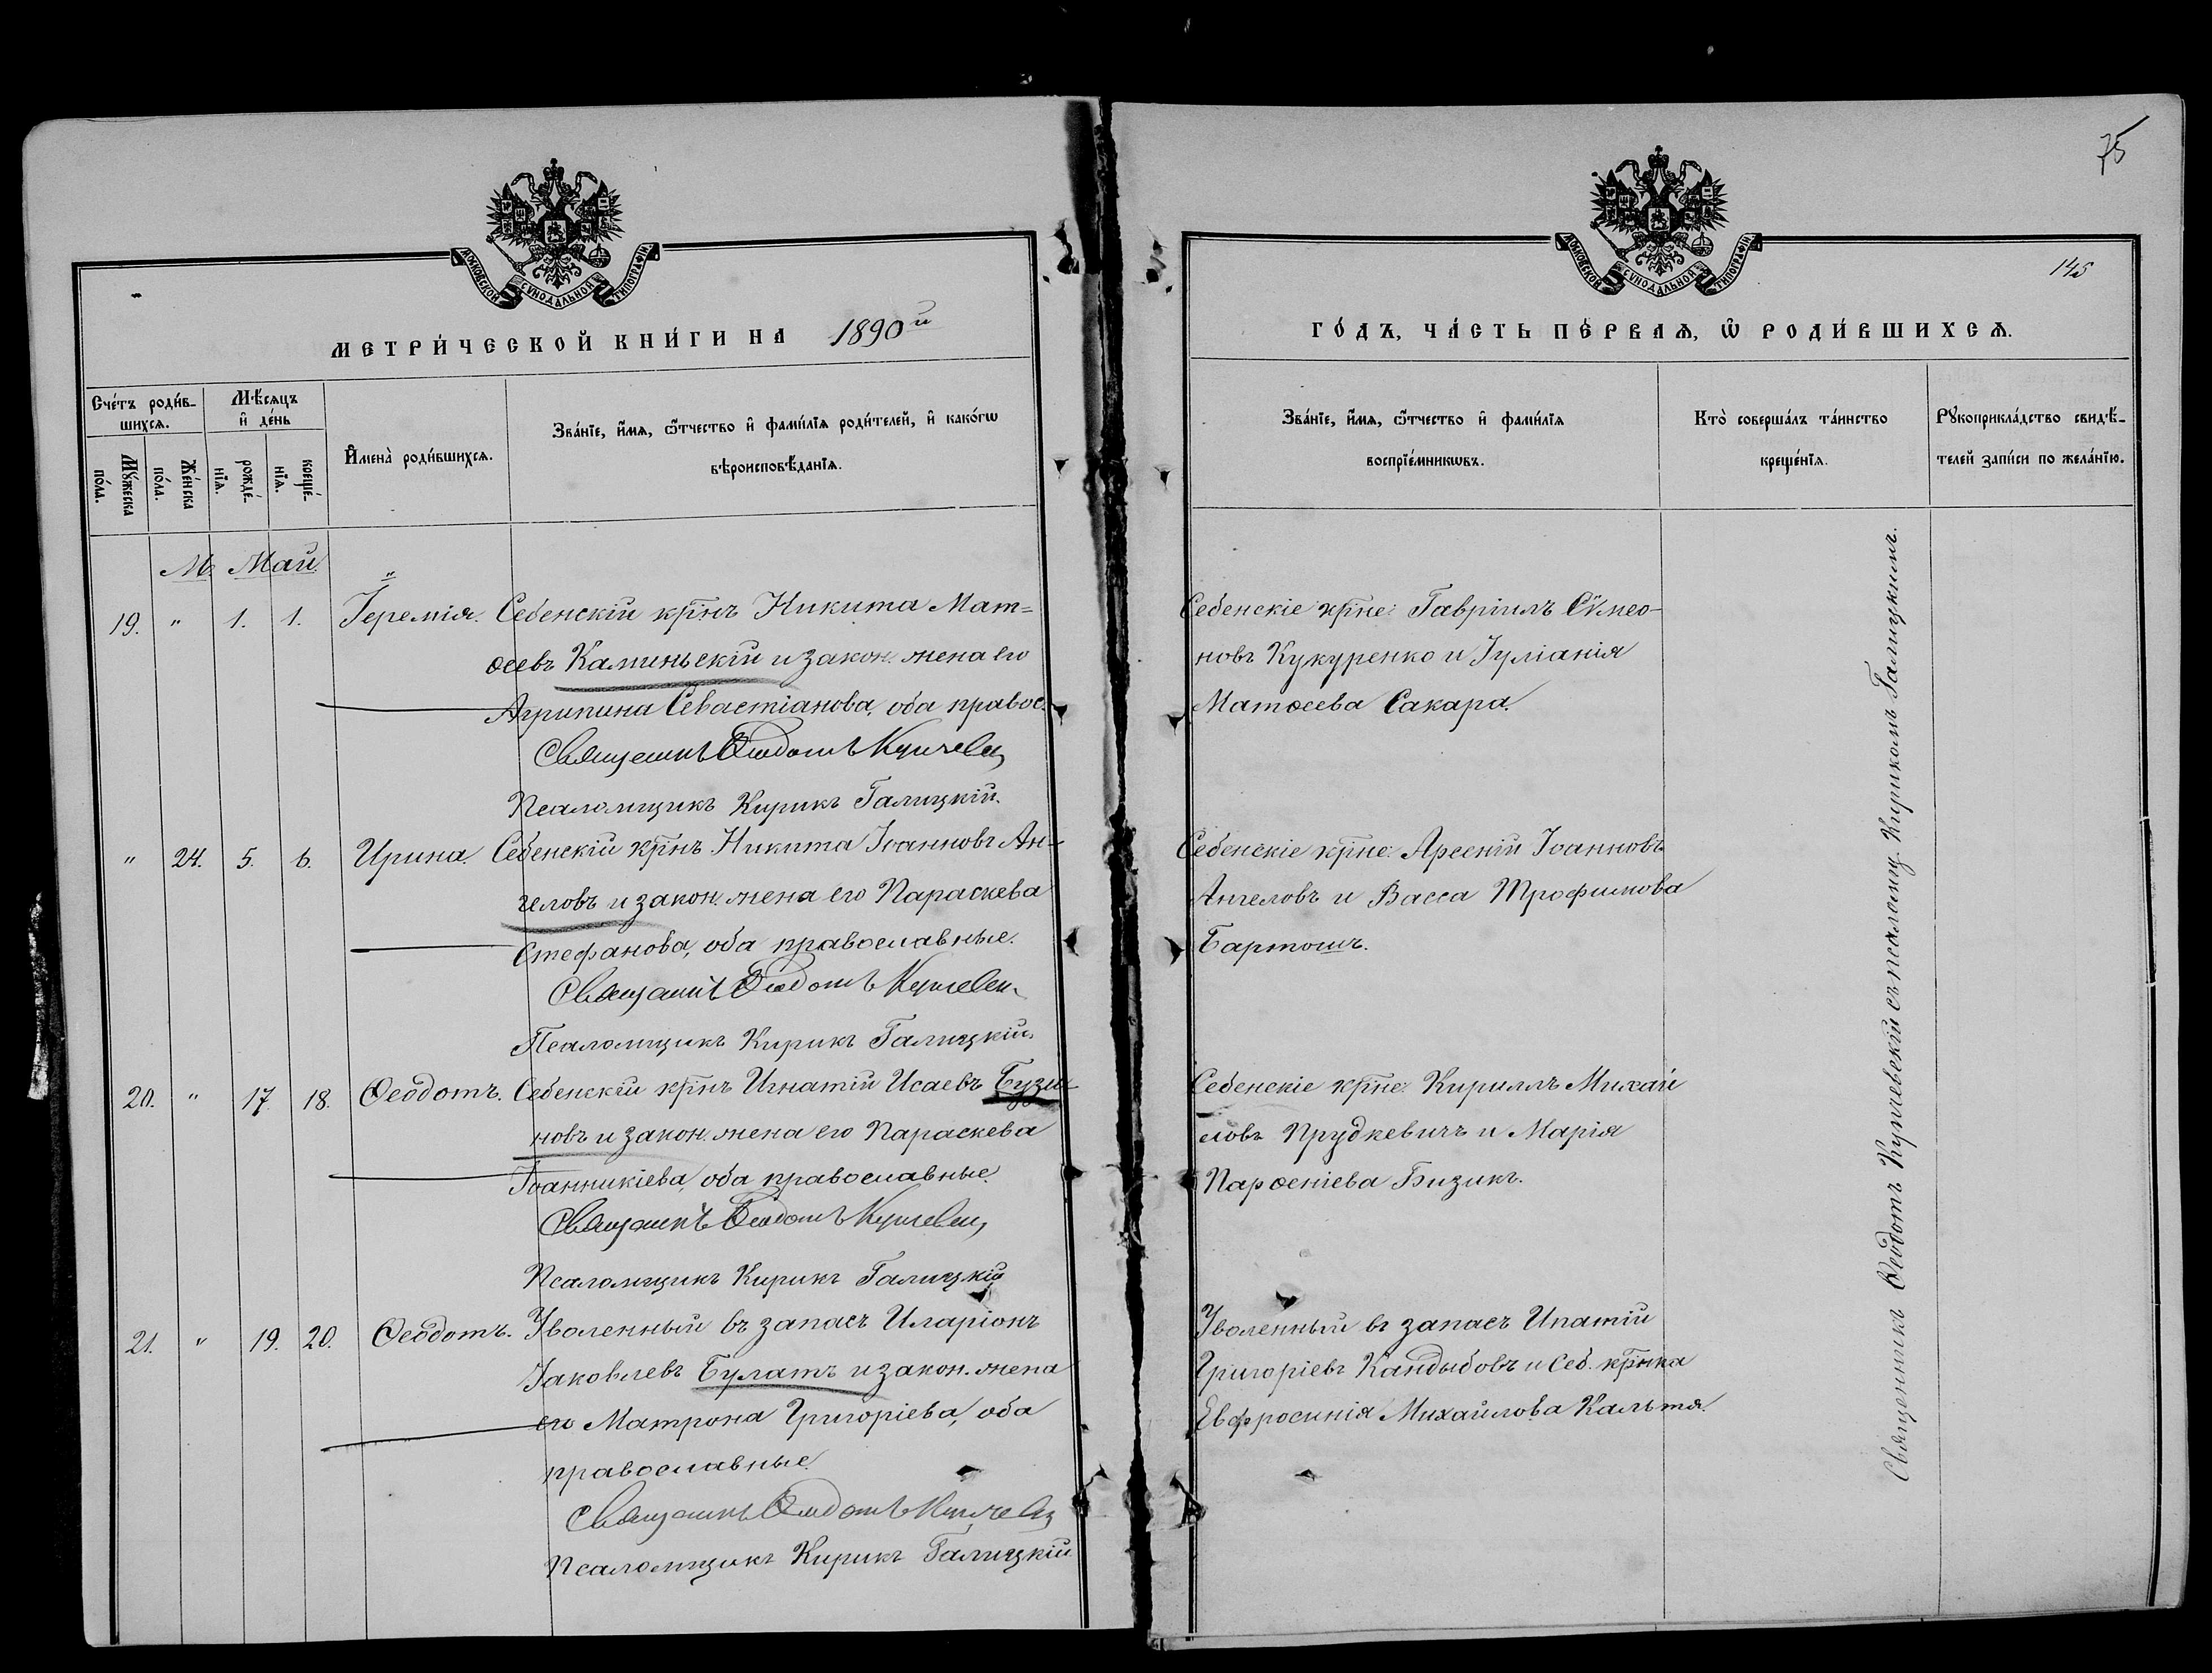 75
145
МОСКОВСКОЙ СУНОДАЛЬНОЙ ТИПОГРАФІИ
МЕТРИ́ЧЕСКОЙ КНИ́ГИ НА 1890й
Сче́тъ роди́в-
шихсѧ.
Мѣ́сѧцъ
и҆ де́нь
Мꙋ́жеска
по́ла.
Же́нска
по́ла.
рожде́-
нїѧ.
креще́-
нїѧ.
И҆мена̀ роди́вшихсѧ.
Зва́нїе, и҆́мѧ, ѻ҆́тчество и҆ фами́лїѧ роди́телей, и҆ како́гѡ
вѣроисповѣ́данїѧ.
М. Май.
19. " 1. 1. Іеремія. Себенскій крнъ Никита Мат=
ѳеевъ Каминьскій и закон. жена его
Агрипина Севастіанова, оба правос.
Священникъ Ѳеодотъ
Псаломщикъ Кирикъ Галицкій.
" 24. 5. 6. Ирина. Себенскій крнъ Никита Іоанновъ Ан-
геловъ и закон. жена его Параскева
Стефанова, оба православные.
Священникъ Ѳеодотъ
Псаломщикъ Кирикъ Галицкій.
20. " 17. 18. Ѳеодотъ. Себенскій крнъ Игнатій Исаевъ Бузи-
новъ и закон. жена его Параскева
Іоанникіева, оба православные.
Священникъ Ѳеодотъ
Псаломщикъ Кирикъ Галицкій
21. " 19. 20. Ѳеодотъ. Уволенный въ запасъ Иларіонъ
Іаковлевъ Булатъ и закон. жена
его Матрона Григоріева, оба
православные.
Священникъ Ѳеодотъ
Псаломщикъ Кирикъ Галицкій
МОСКОВСКОЙ СУНОДАЛЬНОЙ ТИПОГРАФІИ
ГО́ДЪ, ЧА́СТЬ ПЕ́РВАѦ, Ѡ҆ РОДИ́ВШИХСѦ.
Зва́нїе, и҆́мѧ, ѻ҆́тчество и҆ фами́лїѧ
воспрїе́мникѡвъ.
Кто̀ соверша́лъ та́инство
креще́нїѧ.
Рꙋкоприкла́дство свидѣ́-
телей за́писи по жела́нїю.
Себенскіе крне: Гавріилъ Сѵмео-
новъ Кукуренко и Іуліанія
Матѳеева Сакара.
Себенскіе крне: Арсеній Іоанновъ
Ангеловъ и Васса Трофимова
Бартошъ.
Себенскіе крне: Кириллъ Михаи
ловъ Прудкевичъ и Марія
Парѳеніева Бизикъ.
Уволенный въ запасъ Ипатій
Григоріевъ Кандыбовъ и Себ. крнка
Евфросинія Михайлова Кальтя.
Священникъ Ѳеодотъ Купчевскій съ псаломщ. Кирикомъ Галицкимъ.